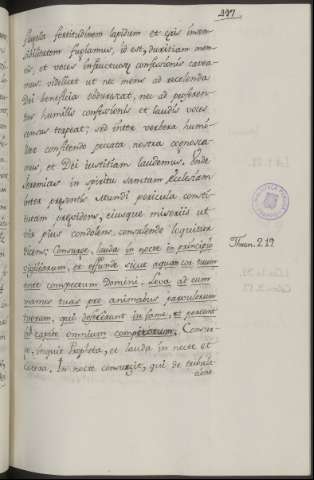 247
flagella fortitudinem lapidum et eris insen-
sibilitatem fugiamus, id est, duritiam men-
tis, et voces infructuosæ confessionis cavea-
mus. videlicet ut nec mens ad recolenda
Dei beneficia obdurescat, nec ad proferen-
tas humillis confessionis et laudis voces
sensus torpeat; sed inter verbera humi-
liter confitendo peccata nostra cognosca-
mus, et Dei iustitiam laudemus. Unde
Jeremias in spiritu sanctam Ecclesiam
inter præsentis Mundi pericula consti-
tutam prævidens, eiusque miseriis ut
vir pius condolens, consolando loquitur
dicens; Consurge, lauda in nocte in principio
vigiliarum, et effunde sicut aquam cor tuum
ante conspectum Domini. Leva ad eum
manus tuas pro animabus parvulorum
tuorum, qui defecerunt in fame, et
in capite omnium compitorum. Consur-
ge, inquit Propheta, et lauda in nocte et
cetera. In nocte consurgit, qui de tribula-
tione
Thren. 2.19